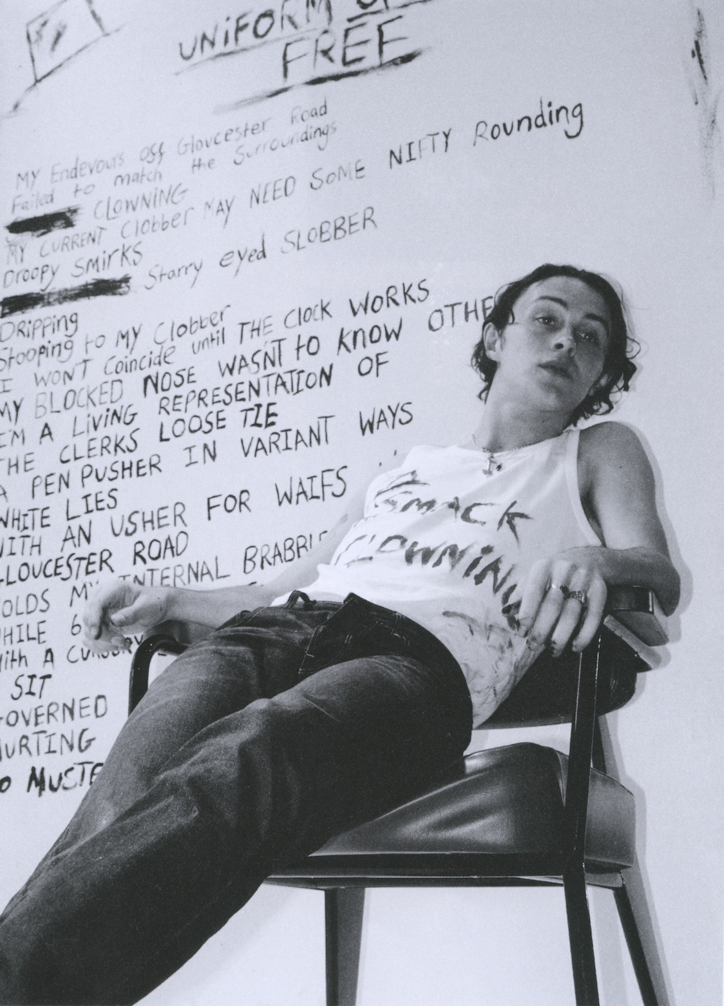 UNIFORM OF
FREE
MY Endevours off Gloucester Road
Failed to match the Surroundings
CLOWNING
MY CURRENT Clobber MAY NEED SOME NIFTY Rounding
Droopy SMIRKS
Starry eyed SLOBBER
DRipping
Stooping to MY Clobber
I WON'T Coincide until THE Clock WORKS
MY BLOCKED NOSE WASN'T to KNOW OTHE
I'M A LIVING REPRESENTATION OF
THE CLERKS LOOSE TIE
A PEN PUSHER IN VARIANT WAYS
WHITE LIES
WITH AN USHER FOR WAIFS
GLOUCESTER ROAD
OLDS MY INTERNAL BRABBLE
HILE
With A
SIT
GOVERNED
HURTING
O MUSTE
SMACK
CLOWNING